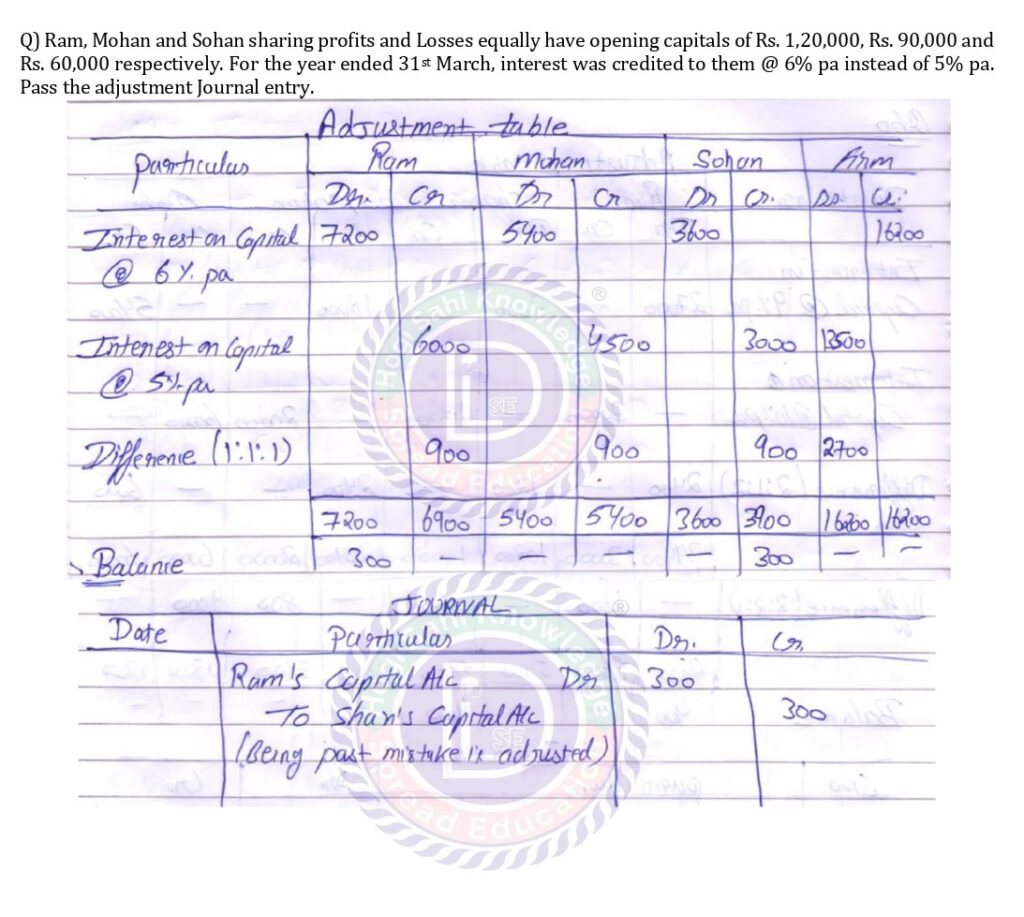 Q) Ram, Mohan and Sohan sharing profits and Losses equally have opening capitals of Rs. 1,20,000, Rs. 90,000 and
Rs. 60,000 respectively. For the year ended 31st March, interest was credited to them @ 6% pa instead of 5% pa.
Pass the adjustment Journal entry.
Adjustment table
Particulars Ram Mohan Sohan Firm
Dr. Cr Dr Cr Dr Cr. Dr. Cr.
Interest on Capital 7200 5400 3600 16200
@ 6%. pa
Interest on Capital 6000 4500 3000 13500
@ 5%. pa
Difference (1:1:1) 900 900 900 2700
7200 6900 5400 5400 3600 3900 16200 16200
Balance 300 – – – – 300 – –
JOURNAL
Date Particulars Dr. Cr.
Ram's Capital A/c Dr 300
To Shan's Capital A/c 300
(Being past mistake is adjusted)
Knowledge
SE
Spread Education
®
Knowledge
SE
Spread Education
®